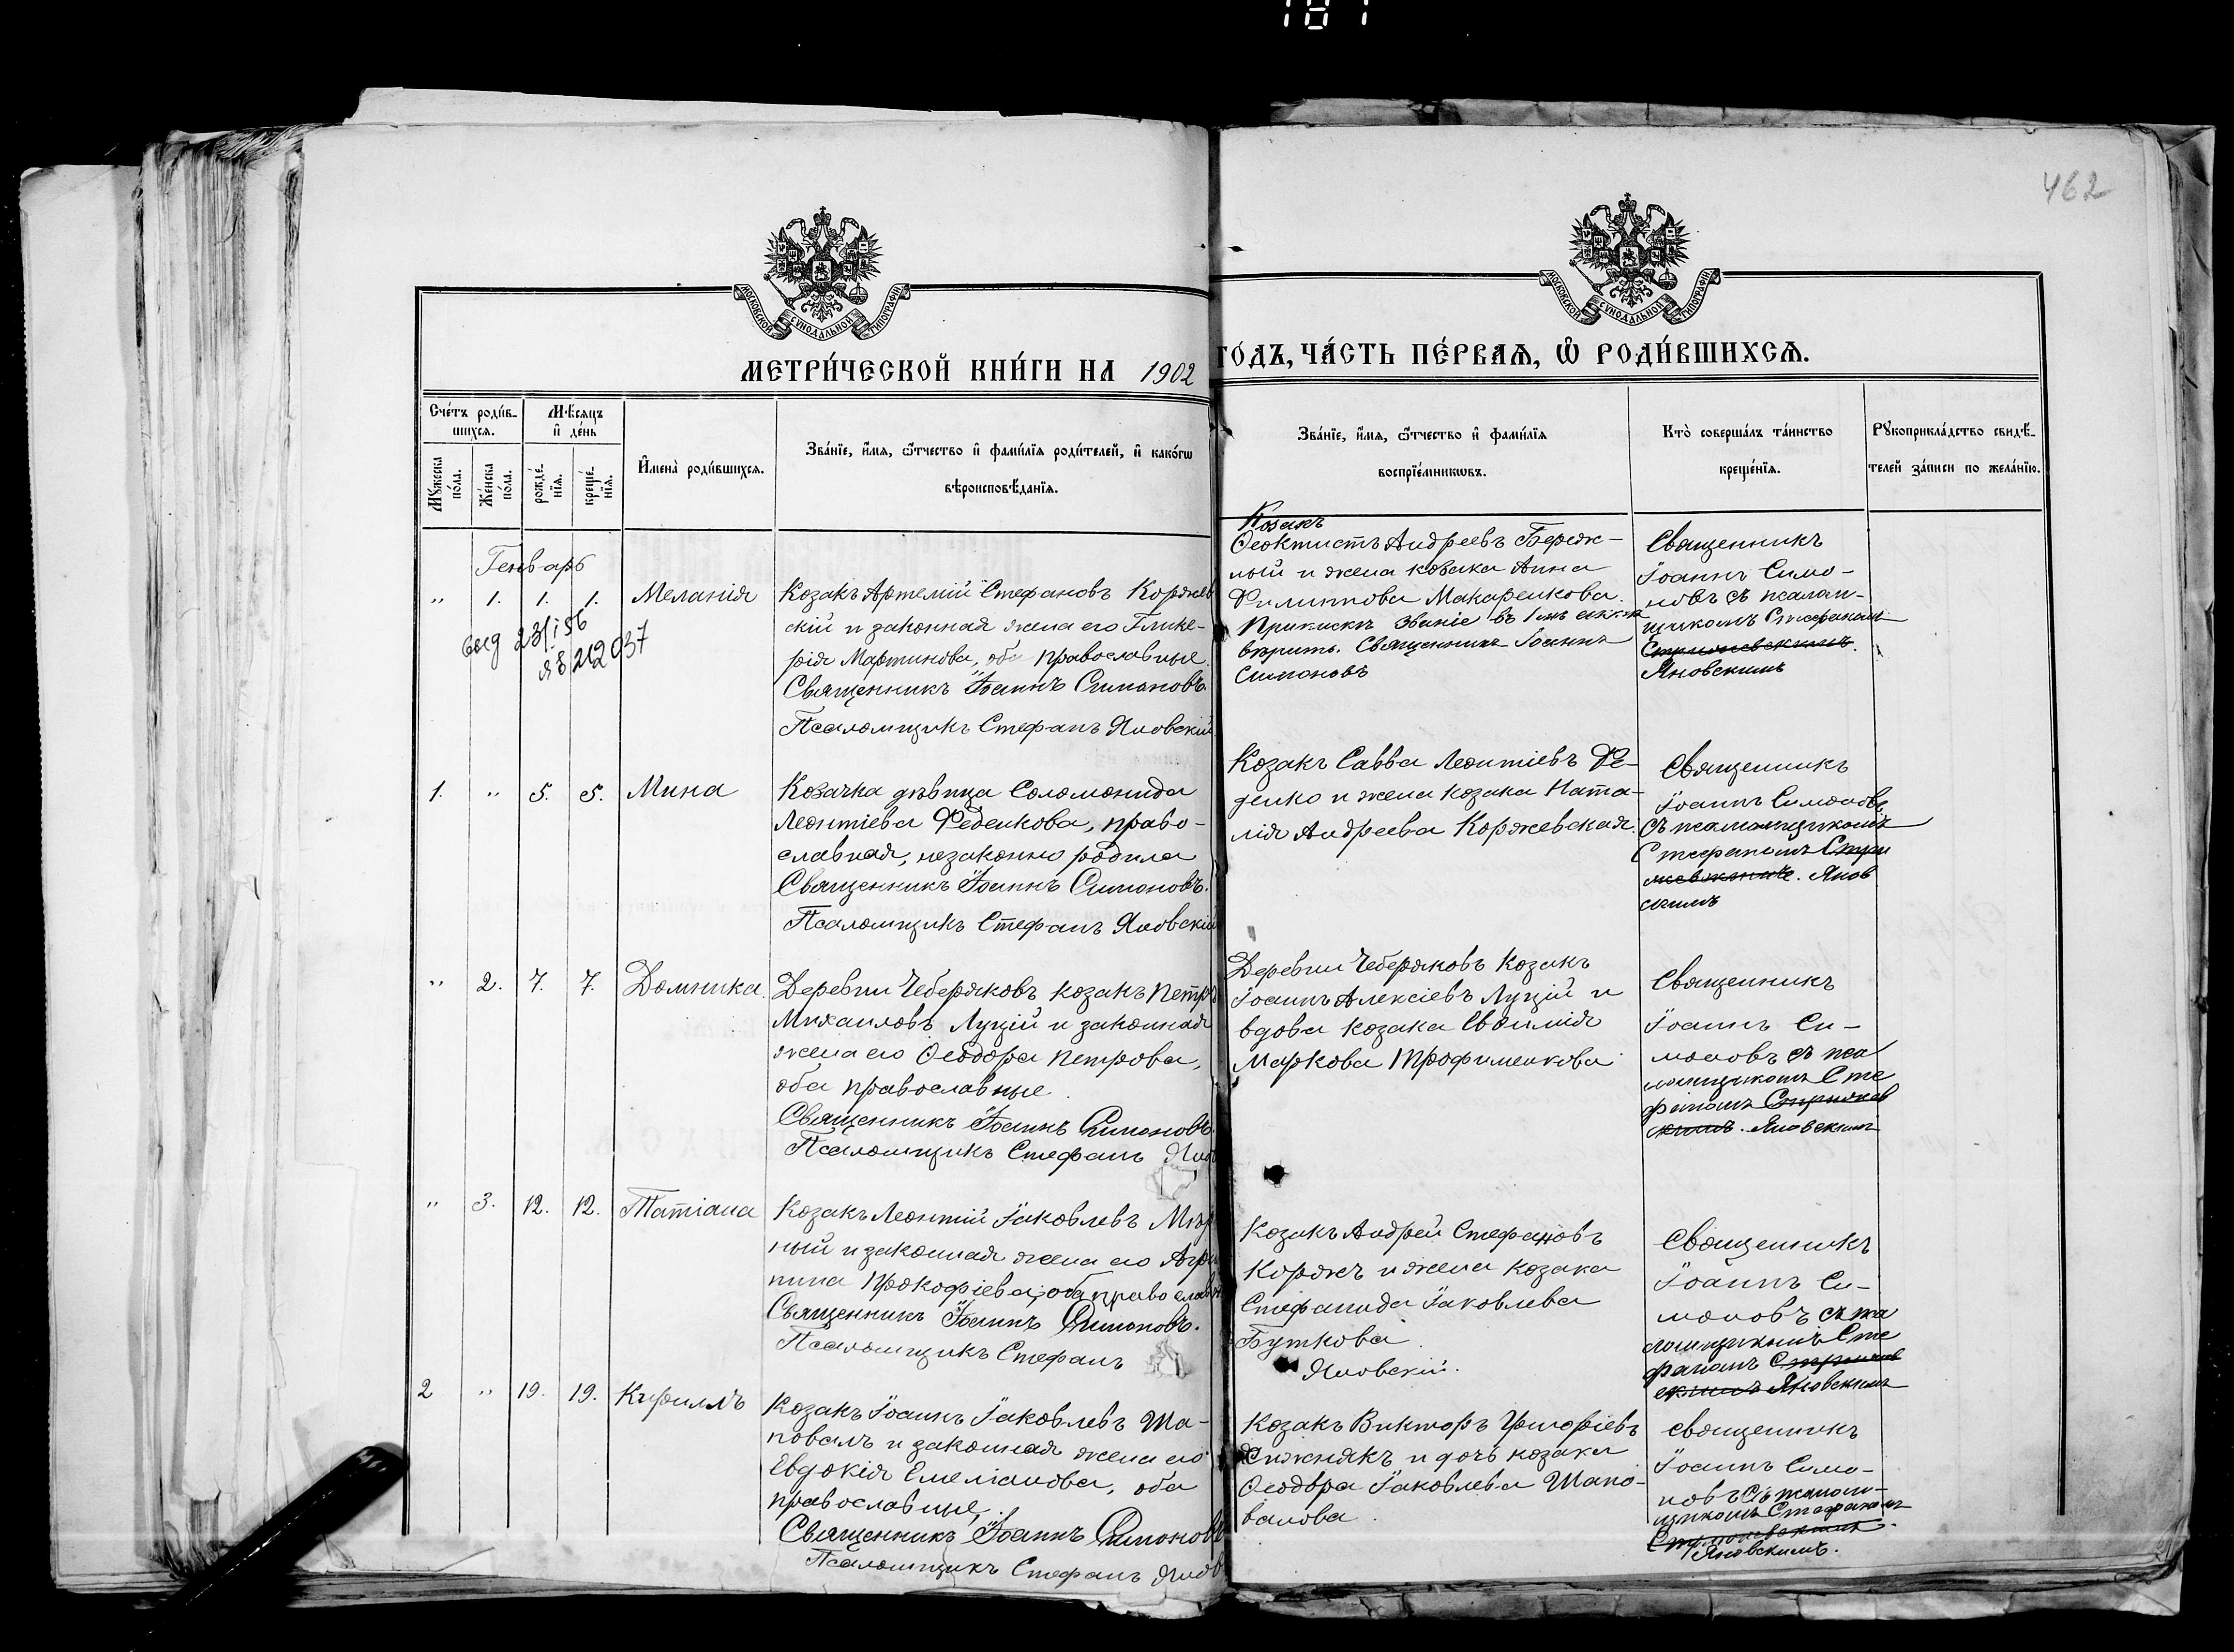 181
462
МОСКОВСКОЙ СѴНОДАЛЬНОЙ ТИПОГРАФІИ
МОСКОВСКОЙ СѴНОДАЛЬНОЙ ТИПОГРАФІИ
МЕТРИ́ЧЕСКОЙ КНИ́ГИ НА 1902 ГО́ДЪ, ЧА́СТЬ ПЕ́РВАѦ, Ѡ҆ РОДИ́ВШИХСѦ.
Сче́тъ роди́в-
шихсѧ.
Мꙋ́жеска по́ла.
Же́нска по́ла.
Мѣ́сѧцъ
и҆ де́нь
рожде́нїѧ.
креще́нїѧ.
И҆мена̀ роди́вшихсѧ.
Зва́нїе, и҆́мѧ, ѻ҆́тчество и҆ фами́лїѧ роди́телей, и҆ како́гѡ
вѣроисповѣ́данїѧ.
Зва́нїе, и҆́мѧ, ѻ҆́тчество и҆ фами́лїѧ
воспрїе́мникѡвъ.
Кто̀ соверша́лъ та́инство
креще́нїѧ.
Рꙋкоприкла́дство свидѣ́-
телей за́писи по жела́нїю.
Генварь
" 1. 1. 1. Меланія
23/I 56
Козакъ Артемій Стефановъ Коржев
скій и законная жена его Глике-
рія Мартинова, оба православные.
Священникъ Іоаннъ Симоновъ.
Псаломщикъ Стефанъ Яновскій
Козакъ
Ѳеоктистъ Андреевъ Береж-
ный и жена козака Анна
Филиппова Макаренкова.
Священникъ Іоаннъ
Симоновъ
Священникъ
Іоаннъ Симо-
новъ съ псалом-
щикомъ Стефаномъ
Яновскимъ
1. " 5. 5. Мина
Козачка дѣвица Соломонида
Леонтіева Феденкова, право-
славная, незаконно родила
Священникъ Іоаннъ Симоновъ.
Псаломщикъ Стефанъ Яновскій
Козакъ Савва Леонтіевъ Фе-
денко и жена козака Ната-
лія Андреева Коржевская.
Священникъ
Іоаннъ Симоновъ
съ псаломщикомъ
Стефаномъ
Янов
скимъ
" 2. 7. 7. Домника.
Деревни Чеберяковъ козакъ Петръ
Михаиловъ Луцій и законная
жена его Ѳеодора Петрова,
оба православные.
Священникъ Іоаннъ Симоновъ.
Псаломщикъ Стефанъ Янов
Деревни Чеберяковъ козакъ
Іоаннъ Алексіевъ Луцій и
вдова козака Евфимія
Маркова Трофименкова
Священникъ
Іоаннъ Си-
моновъ съ пса
ломщикомъ Сте
фаномъ
Яновскимъ
" 3. 12. 12. Татіана
Козакъ Леонтій Іаковлевъ
ный и законная жена его Агри
пина Прокофіева, оба православн
Священникъ Іоаннъ Симоновъ.
Псаломщикъ Стефанъ
Козакъ Андрей Стефановъ
Коржъ и жена козака
Стефанида Іаковлева
Буткова.
Яновскій.
Священникъ
Іоаннъ Си-
моновъ съ пса
ломщикомъ Сте
фаномъ
Яновскимъ
2 " 19. 19. Кириллъ
Козакъ Іоаннъ Іаковлевъ Ша-
повалъ и законная жена его
Евдокія Емеліанова, оба
православные.
Священникъ Іоаннъ Симоновъ
Псаломщикъ Стефанъ Янов
Козакъ Викторъ Григоріевъ
и дочь козака
Ѳеодора Іаковлева Шапо-
валова.
Священникъ
Іоаннъ Симо-
новъ съ псалом-
щикомъ Стефаномъ
Яновскимъ.